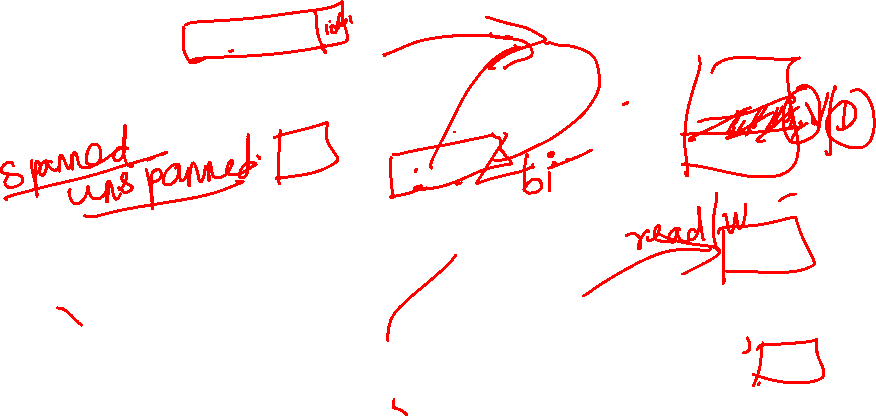 spanned
unspanned
bi
V/D
read/w